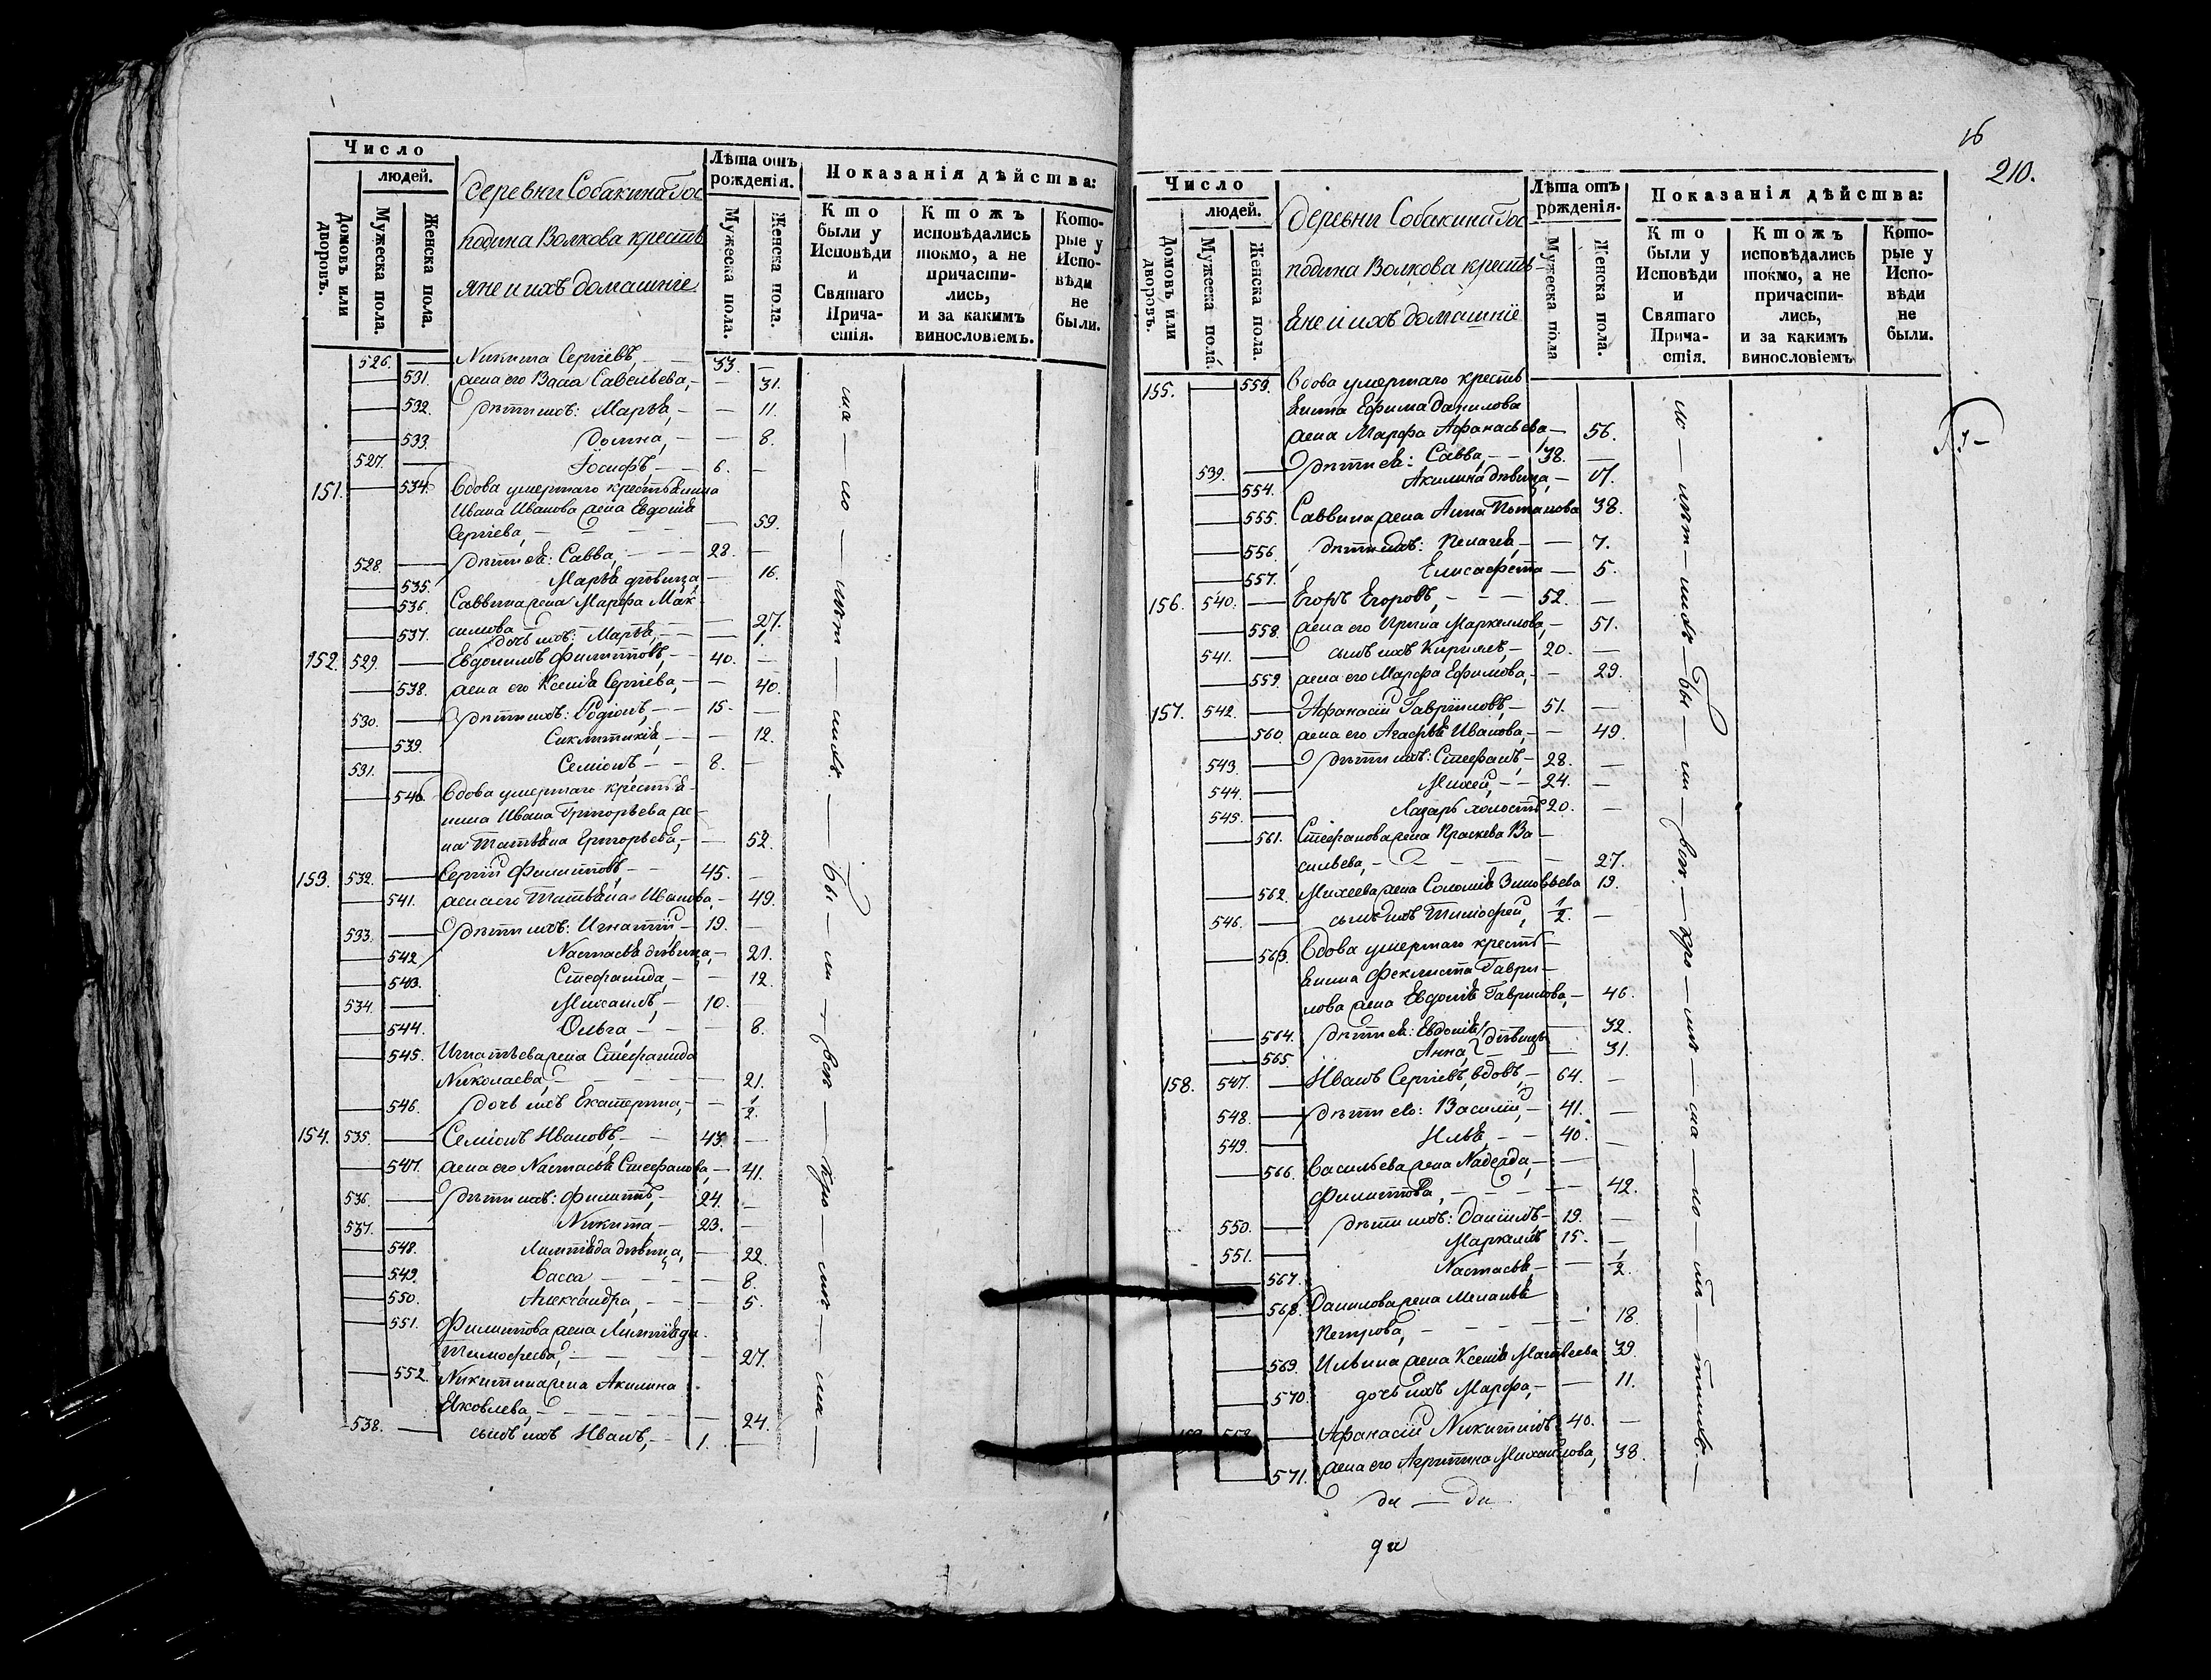 Число
людей.
Домовъ или дворовъ.
Мужеска пола.
Женска пола.
Деревни Собакина Гос
подина Волкова кресть
яне и ихъ домашніе
Лѣта отъ рожденія.
Мужеска пола.
Женска пола.
Показанія дѣйства:
Кто были у Исповѣди и Святаго Причастія.
Ктожъ исповѣдались токмо, а не причастились, и за какимъ винословіемъ.
Которые у Исповѣди не были.
526. — Никита Сергіевъ, — 33. —
— 531. жена его Васа Савельева, — — 31.
— 532. дѣти ихъ: Марѳа, — — 11.
— 533. Домна, — — 8.
527. — Іосифъ, — — 6. —
151. — 534. Вдова умершаго крестьянина
Ивана Иванова жена Евдокія
Сергіева, — — — 59.
528 — дѣти ея: Савва, — — 28. —
— 535. Марья дѣвица — 16.
— 536. Саввина жена Марфа Мак
симова — — 27.
— 537. дочь ихъ: Марья, — — 1.
152. 529. — Евдокимъ Филиповъ, — 40. —
— 538. жена его Ксенія Сергіева, — — 40.
530. — дѣти ихъ: Родіонъ, — — 15. —
— 539. Сиклитикія, — — 12.
531. — Семіонъ — — 8. —
— 540. Вдова умершаго крестья-
нина Ивана Григорьева же-
на Татьяна Григорьева, — — 52.
153. 532. — Сергій Филиповъ, — 45. —
— 541. жена его Татьяна Иванова, — 49.
533. — дѣти ихъ: Игнатій, — 19. —
— 542. Настасья дѣвица, — 21.
— 543. Стефанида, — — 12.
534. — Михаилъ, — 10. —
— 544. Ольга — — — 8.
— 545. Игнатьева жена Стефанида
Николаева, — — — 21.
— 546. дочь ихъ Екатерина, — — 1/2.
154. 535. — Семіонъ Ивановъ, — 43. —
— 547. жена его Настасья Стефанова, — 41.
536. — дѣти ихъ: Филипъ, — 24. —
537. — Никита — 23. —
— 548. дѣвица, — 22.
— 549. Васса, — — — 8.
— 550. Александра, — — 5.
— 551. Филипова жена
Тимофеева, — — — 27.
— 552. Никитина жена Акилина
Яковлева, — — — 24.
538. — сынъ ихъ Иванъ, — 1. —
16
210.
Число
людей.
Домовъ или дворовъ.
Мужеска пола.
Женска пола.
Деревни Собакина Гос
подина Волкова кресть-
яне и ихъ домашніе
Лѣта отъ рожденія.
Мужеска пола
Женска пола.
Показанія дѣйства:
Кто были у Исповѣди и Святаго Причастія.
Ктожъ исповѣдались токмо, а не причастились, и за какимъ винословіемъ
Которые у Исповѣди не были.
155. — 553. Вдова умершаго кресть
янина Ефима Данилова
жена Марфа Афанасьева — 56.
539. — дѣти ея: Савва, — — 38. —
— 554. Акилина дѣвица, — 17.
— 555. Саввина жена Анна Потапова 38.
— 556. дѣти ихъ: Пелагея, — — 7.
— 557. Елисафета — 5.
156. 540. — Егоръ Егоровъ, — — — 52. —
— 558. жена его Ирина Маркеллова, — 51.
541. — сынъ ихъ Кирилъ, — 20. —
— 559. жена его Марфа Ефимова, — — 29.
157. 542. — Афанасій Гавриловъ, — 51. —
— 560. жена его Агафья Иванова, — — 49.
543. — дѣти ихъ: Стефанъ, — 28. —
544. — Михей, — — 24. —
545. — Лазарь холостъ 20. —
— 561. Стефанова жена Праскева Ва-
сильева, — — — — 27.
— 562. Михеева жена Соломія Зиновьева 19.
546. — сынъ ихъ Тимофей, 1/2. —
— 563. Вдова умершаго кресть-
янина Феклиста Гаври-
лова жена Евдокія Гаврилова, — 46.
— 564. дѣти ея: Евдокія дѣвицы — 32.
— 565. Анна, — 31.
158. 547. — Иванъ Сергіевъ, вдовъ, — 64. —
548. — дѣти его: Василій, — 41. —
549. — Илья, — — 40. —
— 566. Васильева жена Надежда, — —
Филипова, — — — — 42.
550. — дѣти ихъ: Даніилъ — 19. —
551. — Маркелъ 15. —
— 567. Настасья — — 1/2.
— 568. Данилова жена Меланья
Петрова, — — — — 18.
— 569. Ильина жена Ксенія Матвеева 39.
— 570. дочь ихъ Марфа, — — 11.
— Афанасій Никитинъ 40. —
— 571. жена его Агрипина Михаилова, 38.